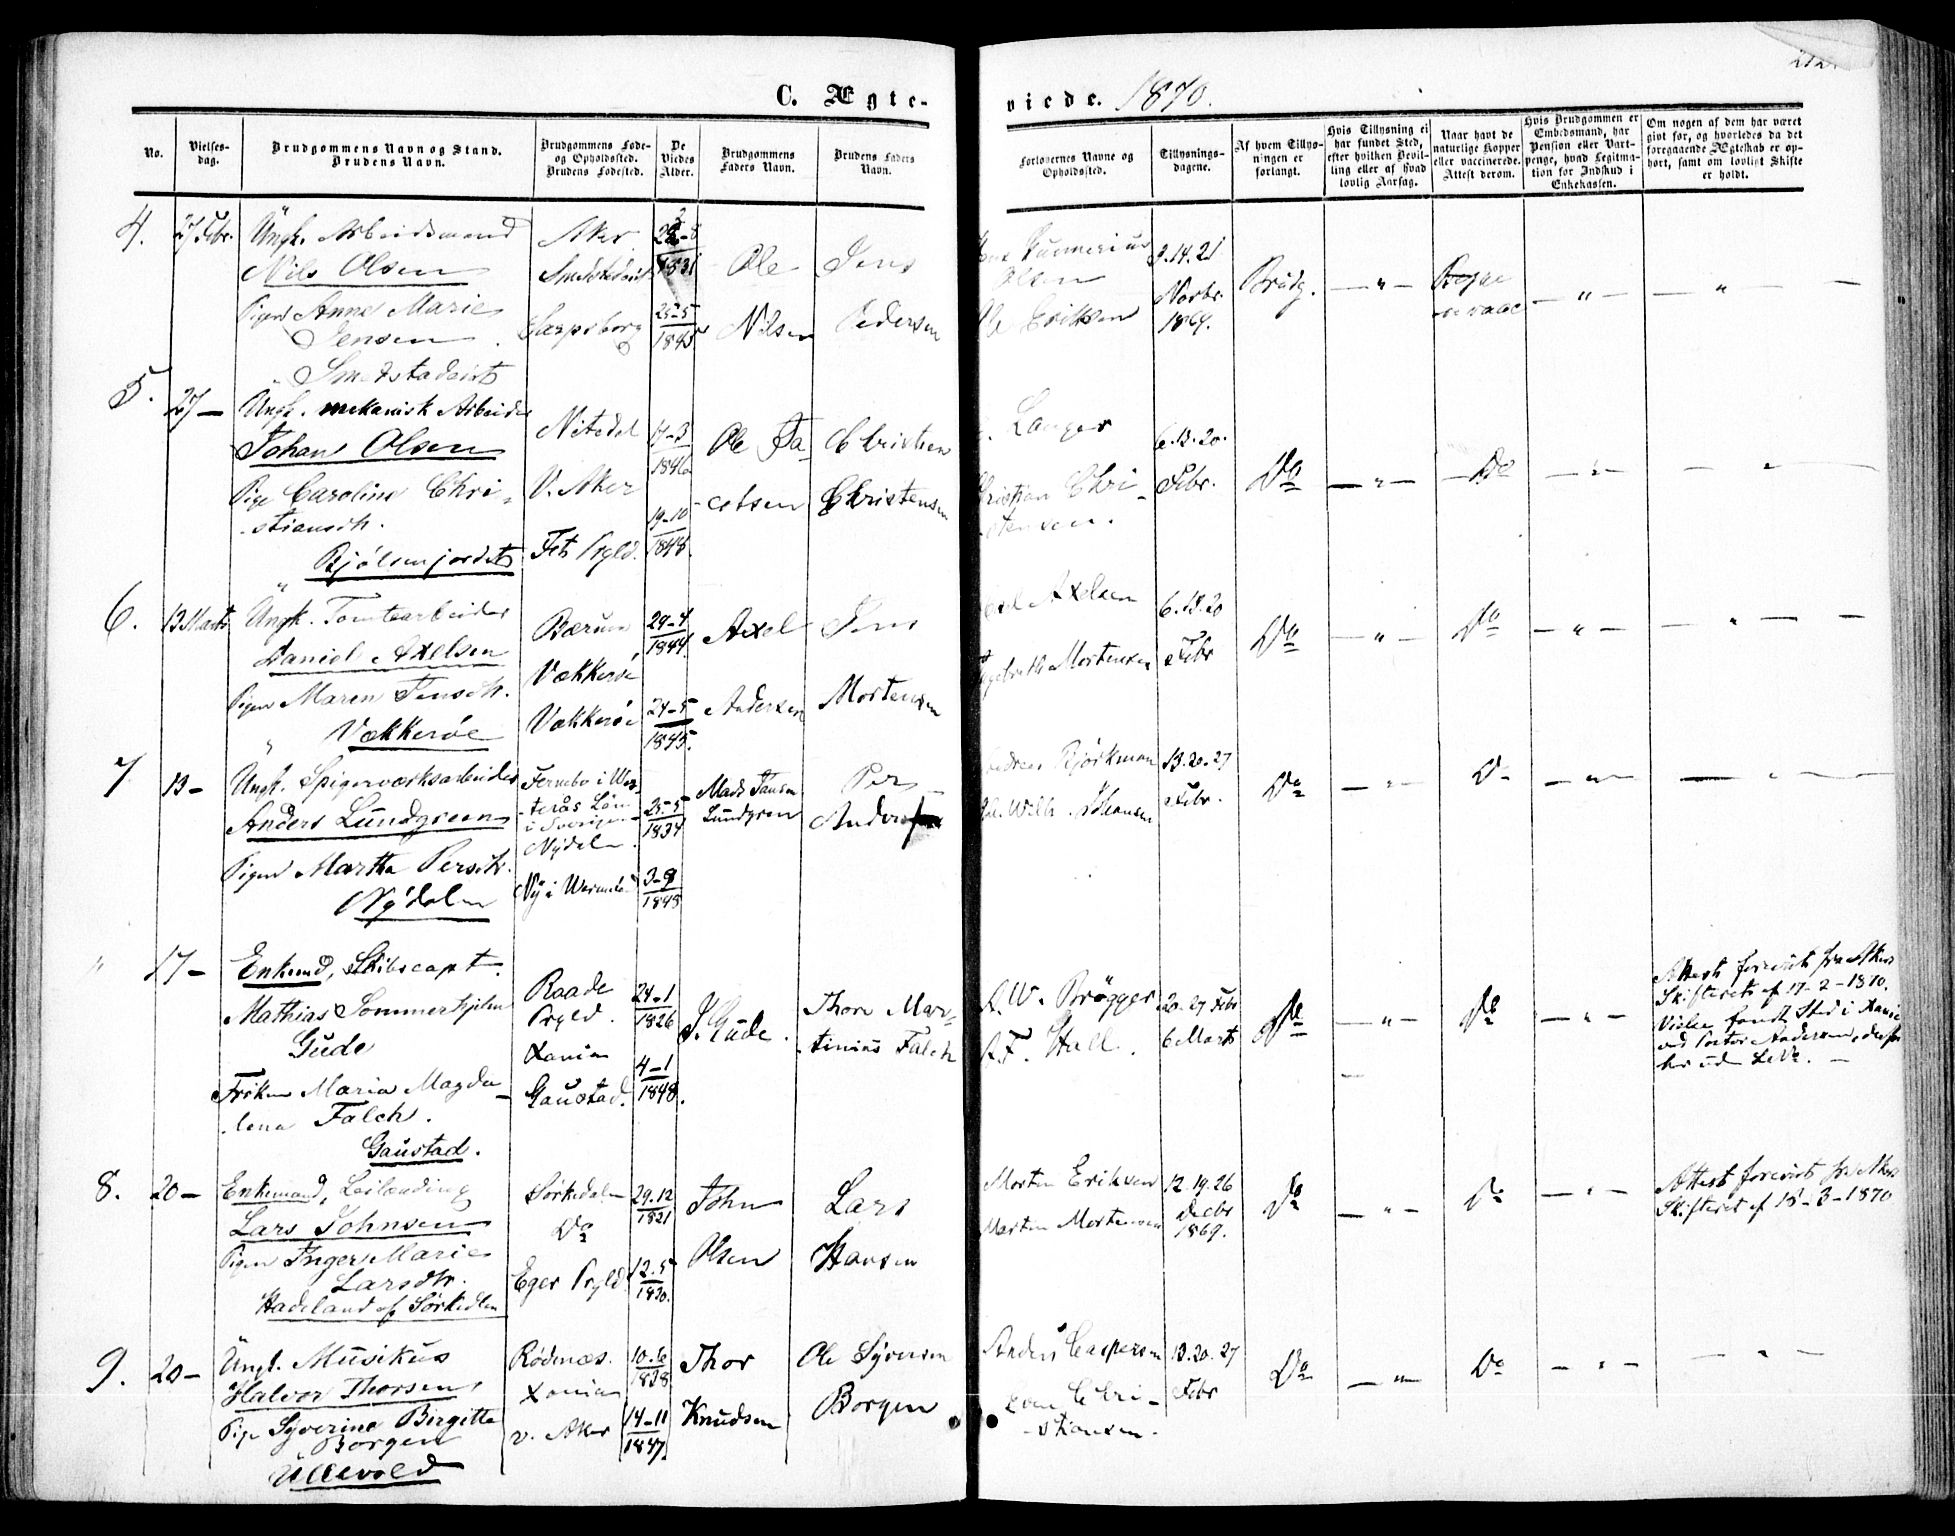 C. Ægte-
viede. 1870.
No.
Vielses-
dag.
Brudgommens Navn og Stand.
Brudens Navn.
Brudgommens Føde-
og Opholdssted.
Brudens Fødested.
De
Viedes
Alder.
Brudgommens
Faders Navn.
Brudens Faders
Navn.
Forlovernes Navne og
Opholdssted.
Tillysnings-
dagene.
Af hvem Tillys-
ningen er
forlangt.
Hvis Tillysning ei
har fundet Sted,
efter hvilken Bevil-
ling eller af hvad
lovlig Aarsag.
Naar havt de
naturlige Kopper
eller vaccinerede.
Attest derom.
Hvis Brudgommen er
Embedsmand, har
Pension eller Vart-
penge, hvad Legitima-
tion for Indskud i
Enkekassen.
Om nogen af dem har været
gift før, og hvorledes da det
foregaaende Ægteskab er op-
hørt, samt om lovligt Skifte
er holdt.
4. 27 Febr.
Ungk. Arbeidsmand
Nils Olsen
Pigen Anne Marie
Jensen
Smedstadeiet
Aker
Sarpsborg
1831
25-5
1845
Ole
Nilsen
Jens
Pedersen
Olsen
Eriksen
7.14.21
Novbr.
1869.
Brudg.
Begge
vacc
5. 27 —
Ungk. mekanisk Arbeider
Johan Olsen
Pige Caroline Chri-
stiansdtr.
Bjølsenjordet
Nitedal
V. Aker
Fet Prgld.
17-3
1846
19-10
1844.
Ole Ja-
cobsen
Christen
Christensen
Langer
Christian Chri-
stensen.
6.13.20.
Febr.
Do
Do
6. 13 Marts
Ungk. Tomtearbeider
Daniel Axelsen
Pigen Maren Jensdtr.
Vækkerøe
Bærum
Vækkerøe
Vækkerøe
29-4
1844.
24-5
1845.
Axel
Andersen
Jens
Mortensen
Axelsen
Mortensen
6.13.20
Febr
Do
Do
7 13 —
Ungk. Spigerværksarbeider
Anders Lundgreen
Pigen Martha Persdtr.
Nydalen
Fernebo i Wes-
terås Län
i Sverige
Nydalen.
Ny i Wermeland
25-5
1834
3-9
1845
Mads Jansen
Lundgren
Per
Andersen
Andreas Bjørkman
Wilh. Johansen
13.20.27
Febr.
Do
Do
" 17 —
Enkemd, Skibscapt.
Mathias Sommerhjelm
Gude
Frøken Maria Magda-
lena Falch.
Gaustad.
Raade
Prgld.
Xania
Gaustad.
24-1
1826
4-1
1848.
J. Gude.
Thore Mar-
tinius Falch
A. W. Brøgger
A. F. Hall.
20.27 Febr
6 Marts
Do
Do
Attest forevist fra Akers
Skifteret af 17-2-1870.
Vielse fandt Sted i Xania
ved Pastor Andersen, derfor
her uden No. —
8. 20 —
Enkemand, Leilænding
Lars Johnsen
Pigen Inger Marie
Larsdtr.
Hadeland af Sørkedlen
Sørkedalen
Do
Eger Prgld.
29.12
1821
12.5
1830.
John
Olsen
Lars
Hansen
Morten Eriksen
Morten Mortensen
12.19.26
Decbr
1869.
Do
Do
Attest forevist fra Akers
Skifteret af 15-3-1870
9. 20 —
Ungk. Musikus
Halvor Thorsen
Pige Syverine Birgitte
Borgen
Ullevold
Rødenæs.
Xania
v. Aker
10-6
1838
14-11
1847
Thor
Knudsen
Ole Syversen
Borgen
Anders Caspersen
Even Chri-
stiansen.
13.20.27
Febr
Do
Do